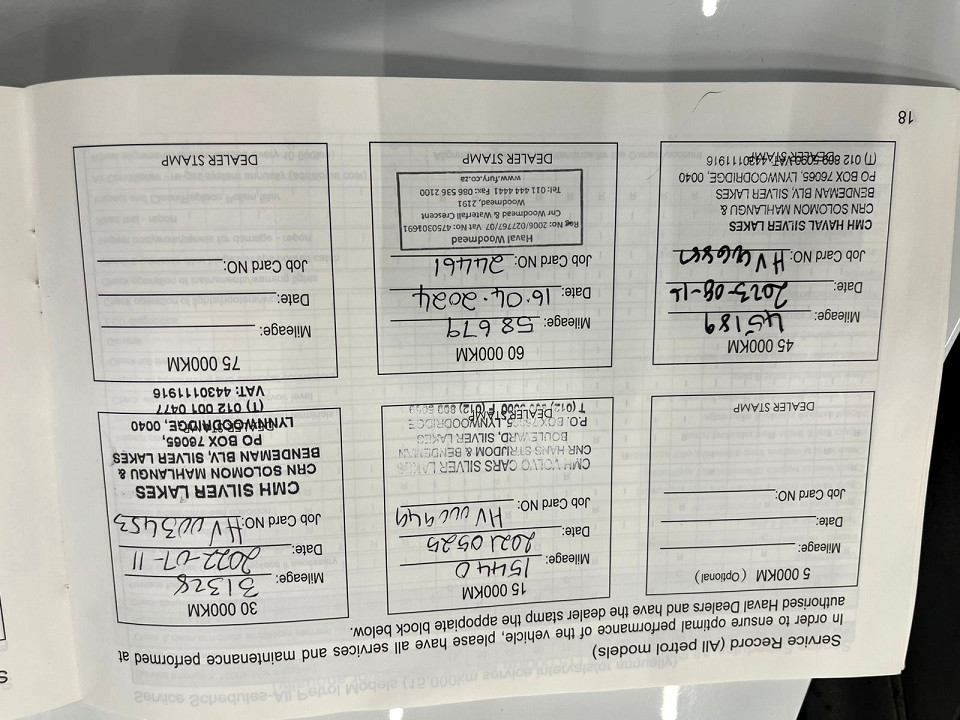 Service Record (All petrol models)
In order to ensure optimal performance of the vehicle, please have all services and maintenance performed at
authorised Haval Dealers and have the dealer stamp the appopiate block below.
5 000KM (Optional)
Mileage:
Date:
Job Card NO:
DEALER STAMP
15 000KM
Mileage: 15440
Date: 20210525
Job Card NO: HV000949
CMH VOLVO CARS SILVER LAKES
CNR HANS STRIJDOM & BENDEMAN
BOULEVARD, SILVER LAKES
P.O. BOX 76065, LYNWOODRIDGE
DEALER STAMP
30 000KM
Mileage: 31328
Date: 2022-07-11
Job Card NO: HV0003453
CMH SILVER LAKES
CRN SOLOMON MAHLANGU &
BENDEMAN BLV, SILVER LAKES
PO BOX 76065,
LYNNWOODRIDGE, 0040
DEALER STAMP
(T) 012 001 0477
VAT: 4430111916
45 000KM
Mileage: 45189
Date: 2023-08-16
Job Card NO:
CMH HAVAL SILVER LAKES
CRN SOLOMON MAHLANGU &
BENDEMAN BLV, SILVER LAKES
PO BOX 76065, LYNWOODRIDGE, 0040
DEALER STAMP
60 000KM
Mileage: 58 679
Date: 16.04.2024
Job Card NO: 24461
Haval Woodmead
Reg No: 2006/027767/07 Vat No: 4750301691
Cnr Woodmead & Waterfall Crescent
Woodmead, 2191
Tel: 011 444 4441 Fax: 086 536 2100
www.fury.co.za
DEALER STAMP
75 000KM
Mileage:
Date:
Job Card NO:
DEALER STAMP
18